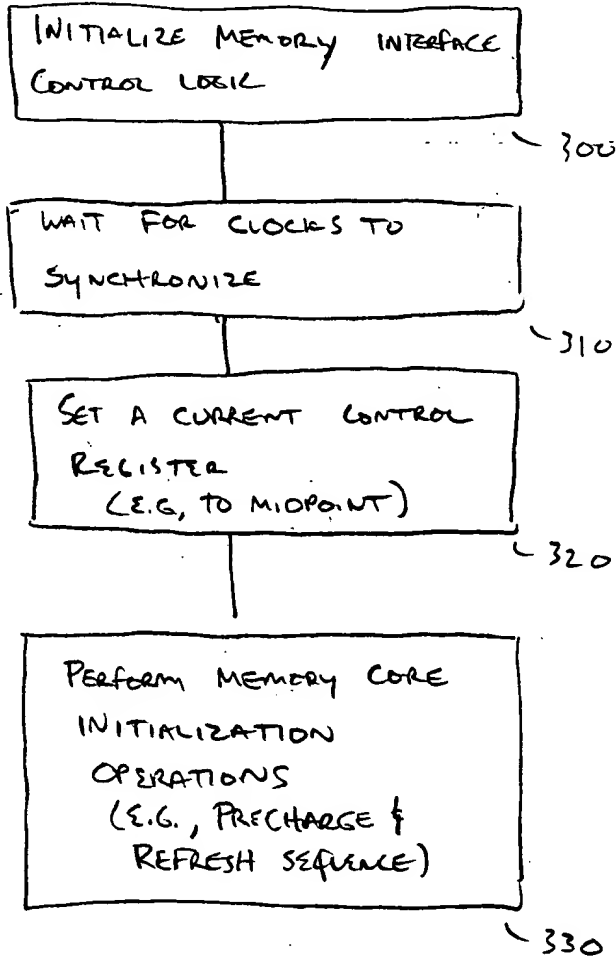 INITIALIZE MEMORY INTERFACE
CONTROL LOGIC
300
WAIT FOR CLOCKS TO
SYNCHRONIZE
310
SET A CURRENT CONTROL
REGISTER
(E.G, TO MIDPOINT)
320
PERFORM MEMORY CORE
INITIALIZATION
OPERATIONS
(E.G., PRECHARGE &
REFRESH SEQUENCE)
330